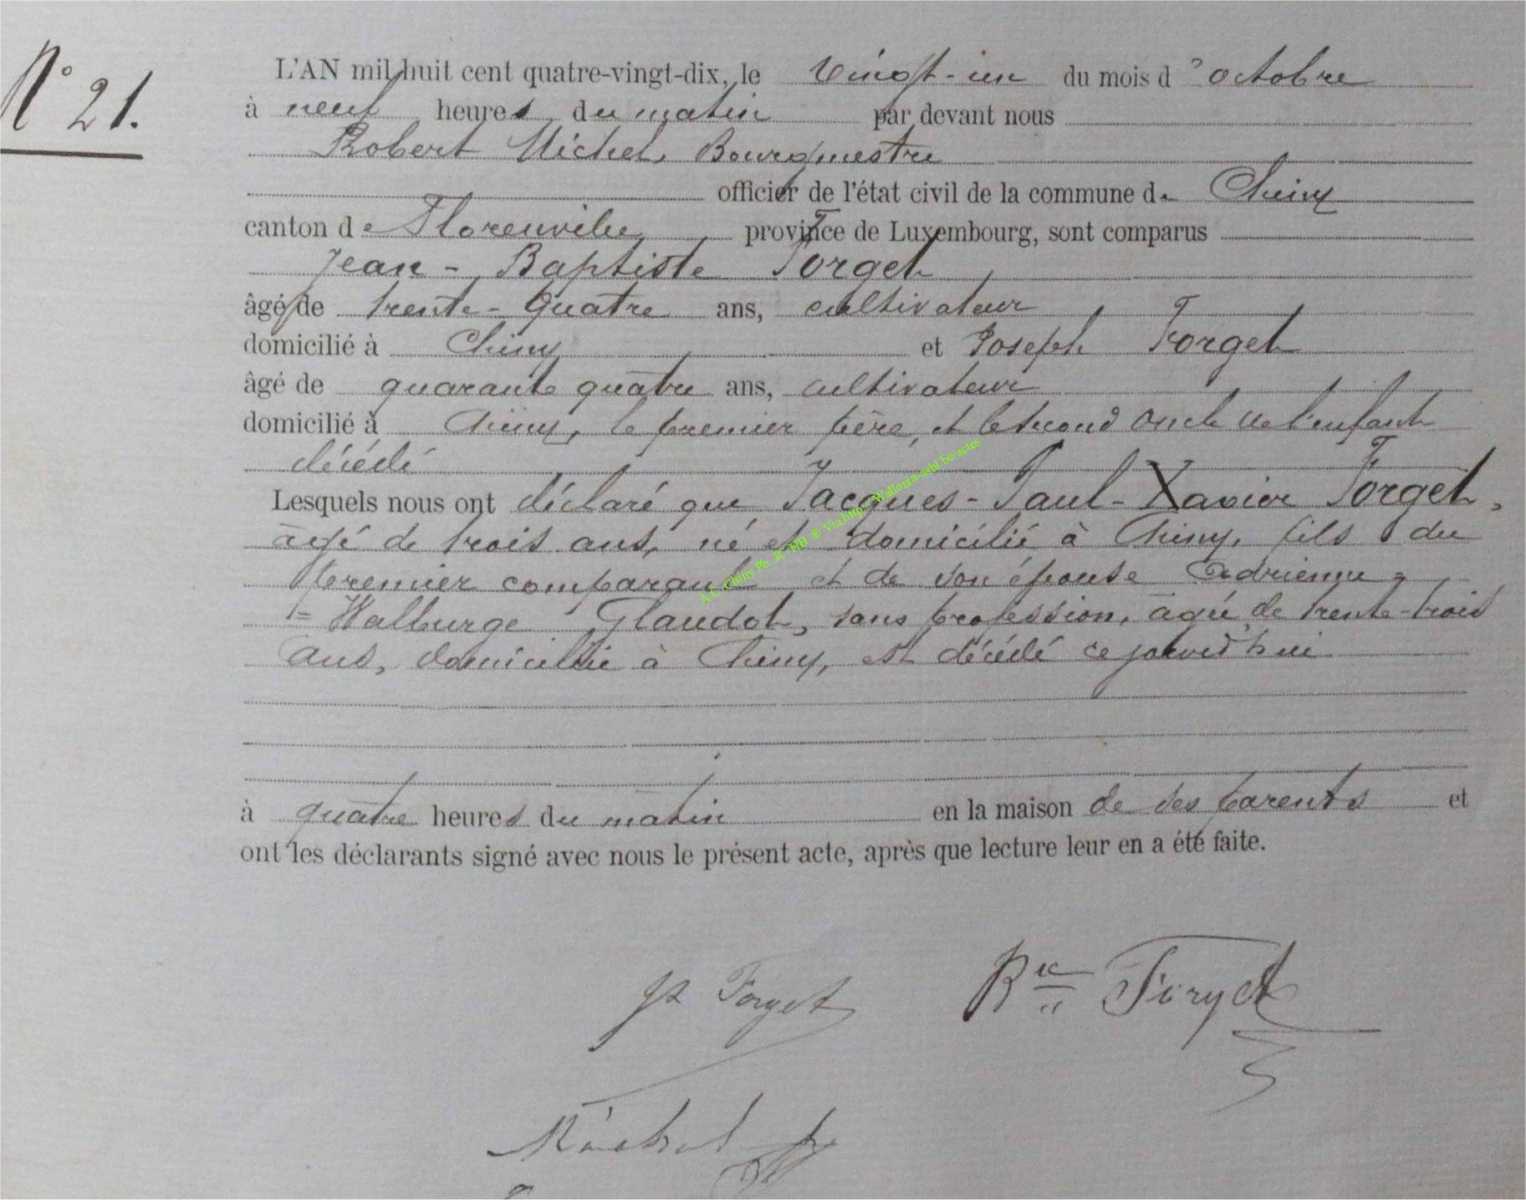 N° 21.
L'AN mil huit cent quatre-vingt-dix, le vingt-un du mois d'octobre
à neuf heures du matin par devant nous
Robert Michel, Bourgmestre
officier de l'état civil de la commune de Chiny
canton de Florenville, province de Luxembourg, sont comparus
Jean-Baptiste Forget
âgé de trente-quatre ans, cultivateur
domicilié à Chiny et Joseph Forget
âgé de quarante quatre ans, cultivateur
domicilié à Chiny, le premier père, et le second oncle de l'enfant
décédé
Lesquels nous ont déclaré que Jacques-Paul-Xavier Forget,
âgé de trois ans, né et domicilié à Chiny, fils du
premier comparant et de son épouse Adrienne-
=Walburge Glaudot, sans profession, âgée de trente-trois
ans, domiciliée à Chiny, est décédé ce jourd'hui
à quatre heures du matin en la maison de ses parents et
ont les déclarants signé avec nous le présent acte, après que lecture leur en a été faite.
Jh Forget Bte Forget
Michel